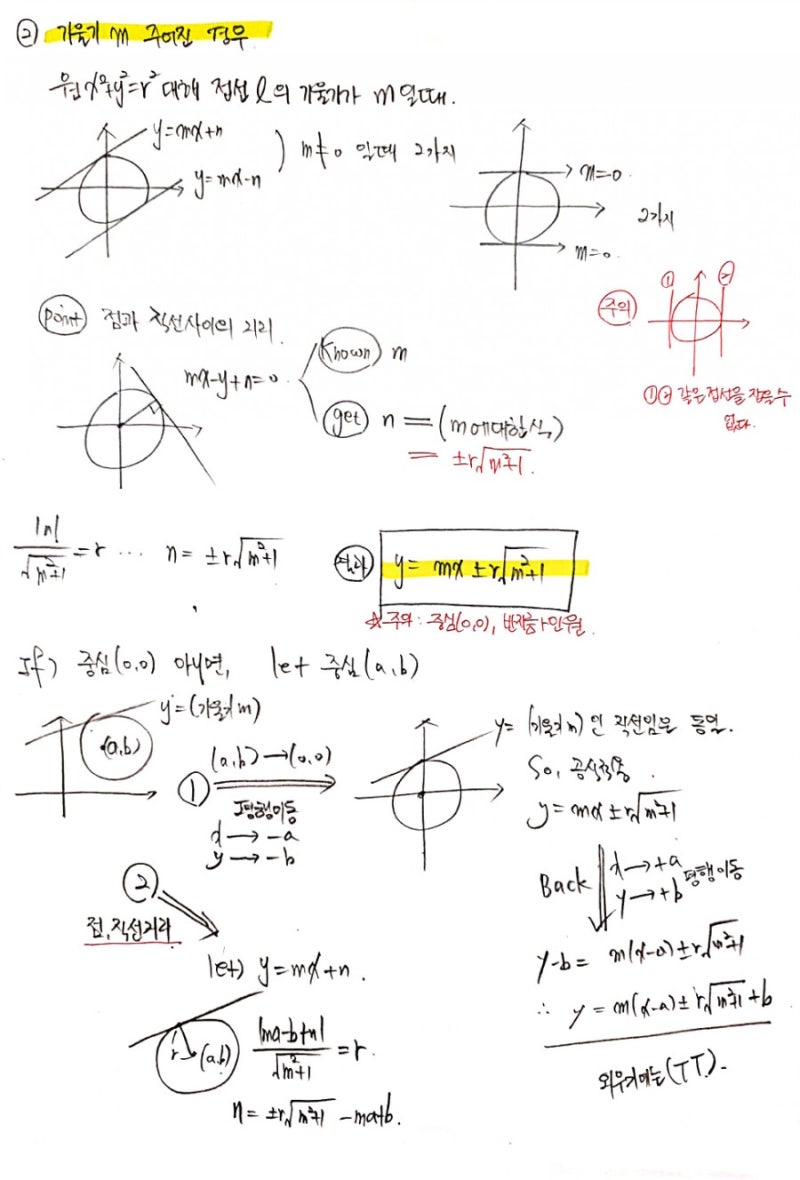 ② 기울기 m 주어진 경우
원 x²+y²=r² 대해 접선 l의 기울기가 m일때.
y=mx+n
y=mx-n
) m≠0 일때 2가지
m=0.
m=0.
2가지
주의
① ②
①② 같은 접선을 잡을수
없다.
point 점과 직선사이의 거리.
mx-y+n=0.
Known m
get n = (m에대한식)
= ±r√m²+1.
|n|/√m²+1 = r ... n = ±r√m²+1
결과 y= mx ±r√m²+1
☆주의: 중심(0,0), 반지름 r인 원.
If) 중심(0,0) 아니면, let 중심(a,b)
y=(기울기 m)
(a,b)
① (a,b)→(0,0)
평행이동
x → -a
y → -b
y= (기울기 m)인 직선임은 동일.
So, 공식적용.
y=mx±r√m²+1
Back x→+a
y→+b 평행이동
y-b= m(x-a)±r√m²+1
∴ y=m(x-a)±r√m²+1+b
외우기에는(TT).
②
점,직선거리
let) y=mx+n.
r (a,b)
|ma-b+n|/√m²+1 = r.
n=±r√m²+1 -ma+b.